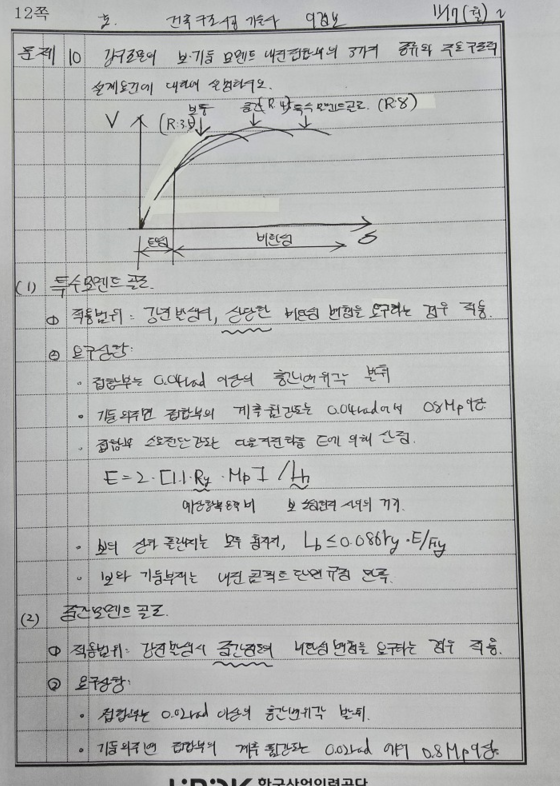 12쪽
11/17 (월) 2
문제 10 강구조물의 보·기둥 모멘트 내진접합부의 3가지 종류와 주요구조적
설계요건에 대하여 설명하시오.
보통 중간(R:4) 특수모멘트골조 (R:8)
(R:3)
V
탄성 비탄성 δ
(1) 특수모멘트 골조
① 적용범위 : 강진 발생시, 상당한 비탄성 변형을 요구하는 경우 적용.
② 요구성능:
· 접합부는 0.04rad 이상의 층간변위각 발휘
· 기둥외주면 접합부의 계측휨강도는 0.04rad에서 0.8Mp 이상
· 접합부 소요전단강도는 지진하중 E에 의해 산정.
E = 2·[1.1·Ry·Mp] / Lh
예상항복응력비 보 소성힌지 사이의 거리.
· 보의 상하 플랜지는 모두 횡지지, Lb ≤ 0.086ry·E/Fy
· 보와 기둥부재는 내진 콤팩트 단면규정 만족.
(2) 중간모멘트 골조.
① 적용범위: 강진발생시 중간정도 비탄성변형을 요구하는 경우 적용.
② 요구성능:
· 접합부는 0.02rad 이상의 층간변위각 발휘.
· 기둥외주면 접합부의 계측휨강도는 0.02rad 에서 0.8Mp 이상.
한국산업인력공단